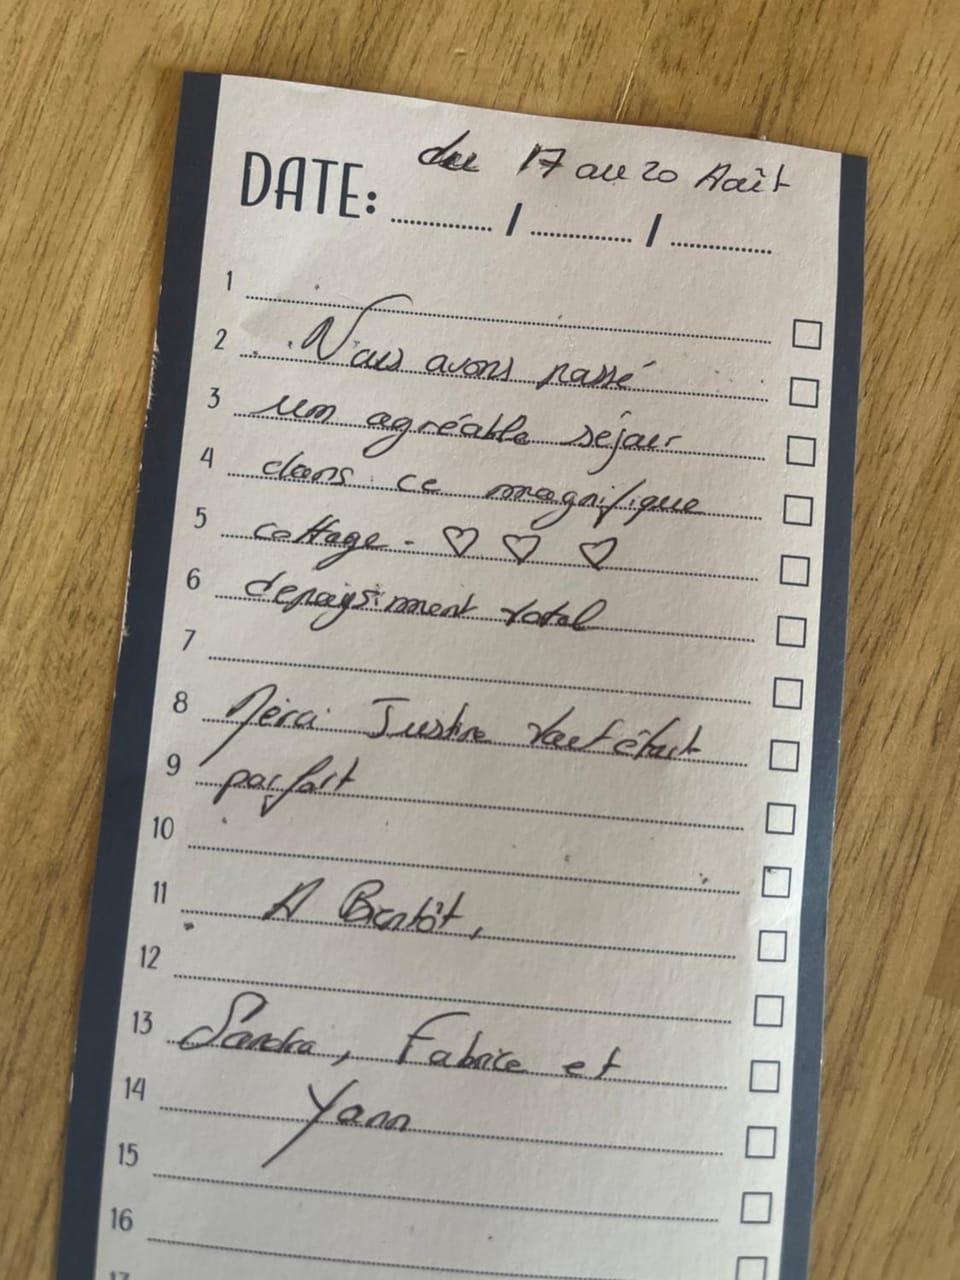 du 17 au 20 Août
DATE: ....... / ....... / .......
1
2 Nous avons passé
3 un agréable séjour
4 dans ce magnifique
5 cottage. ♡ ♡ ♡
6 depaysiment total
7
8 Merci Justine tout était
9 parfait
10
11 A Bientôt,
12
13 Sandra, Fabrice et
14 Yann
15
16